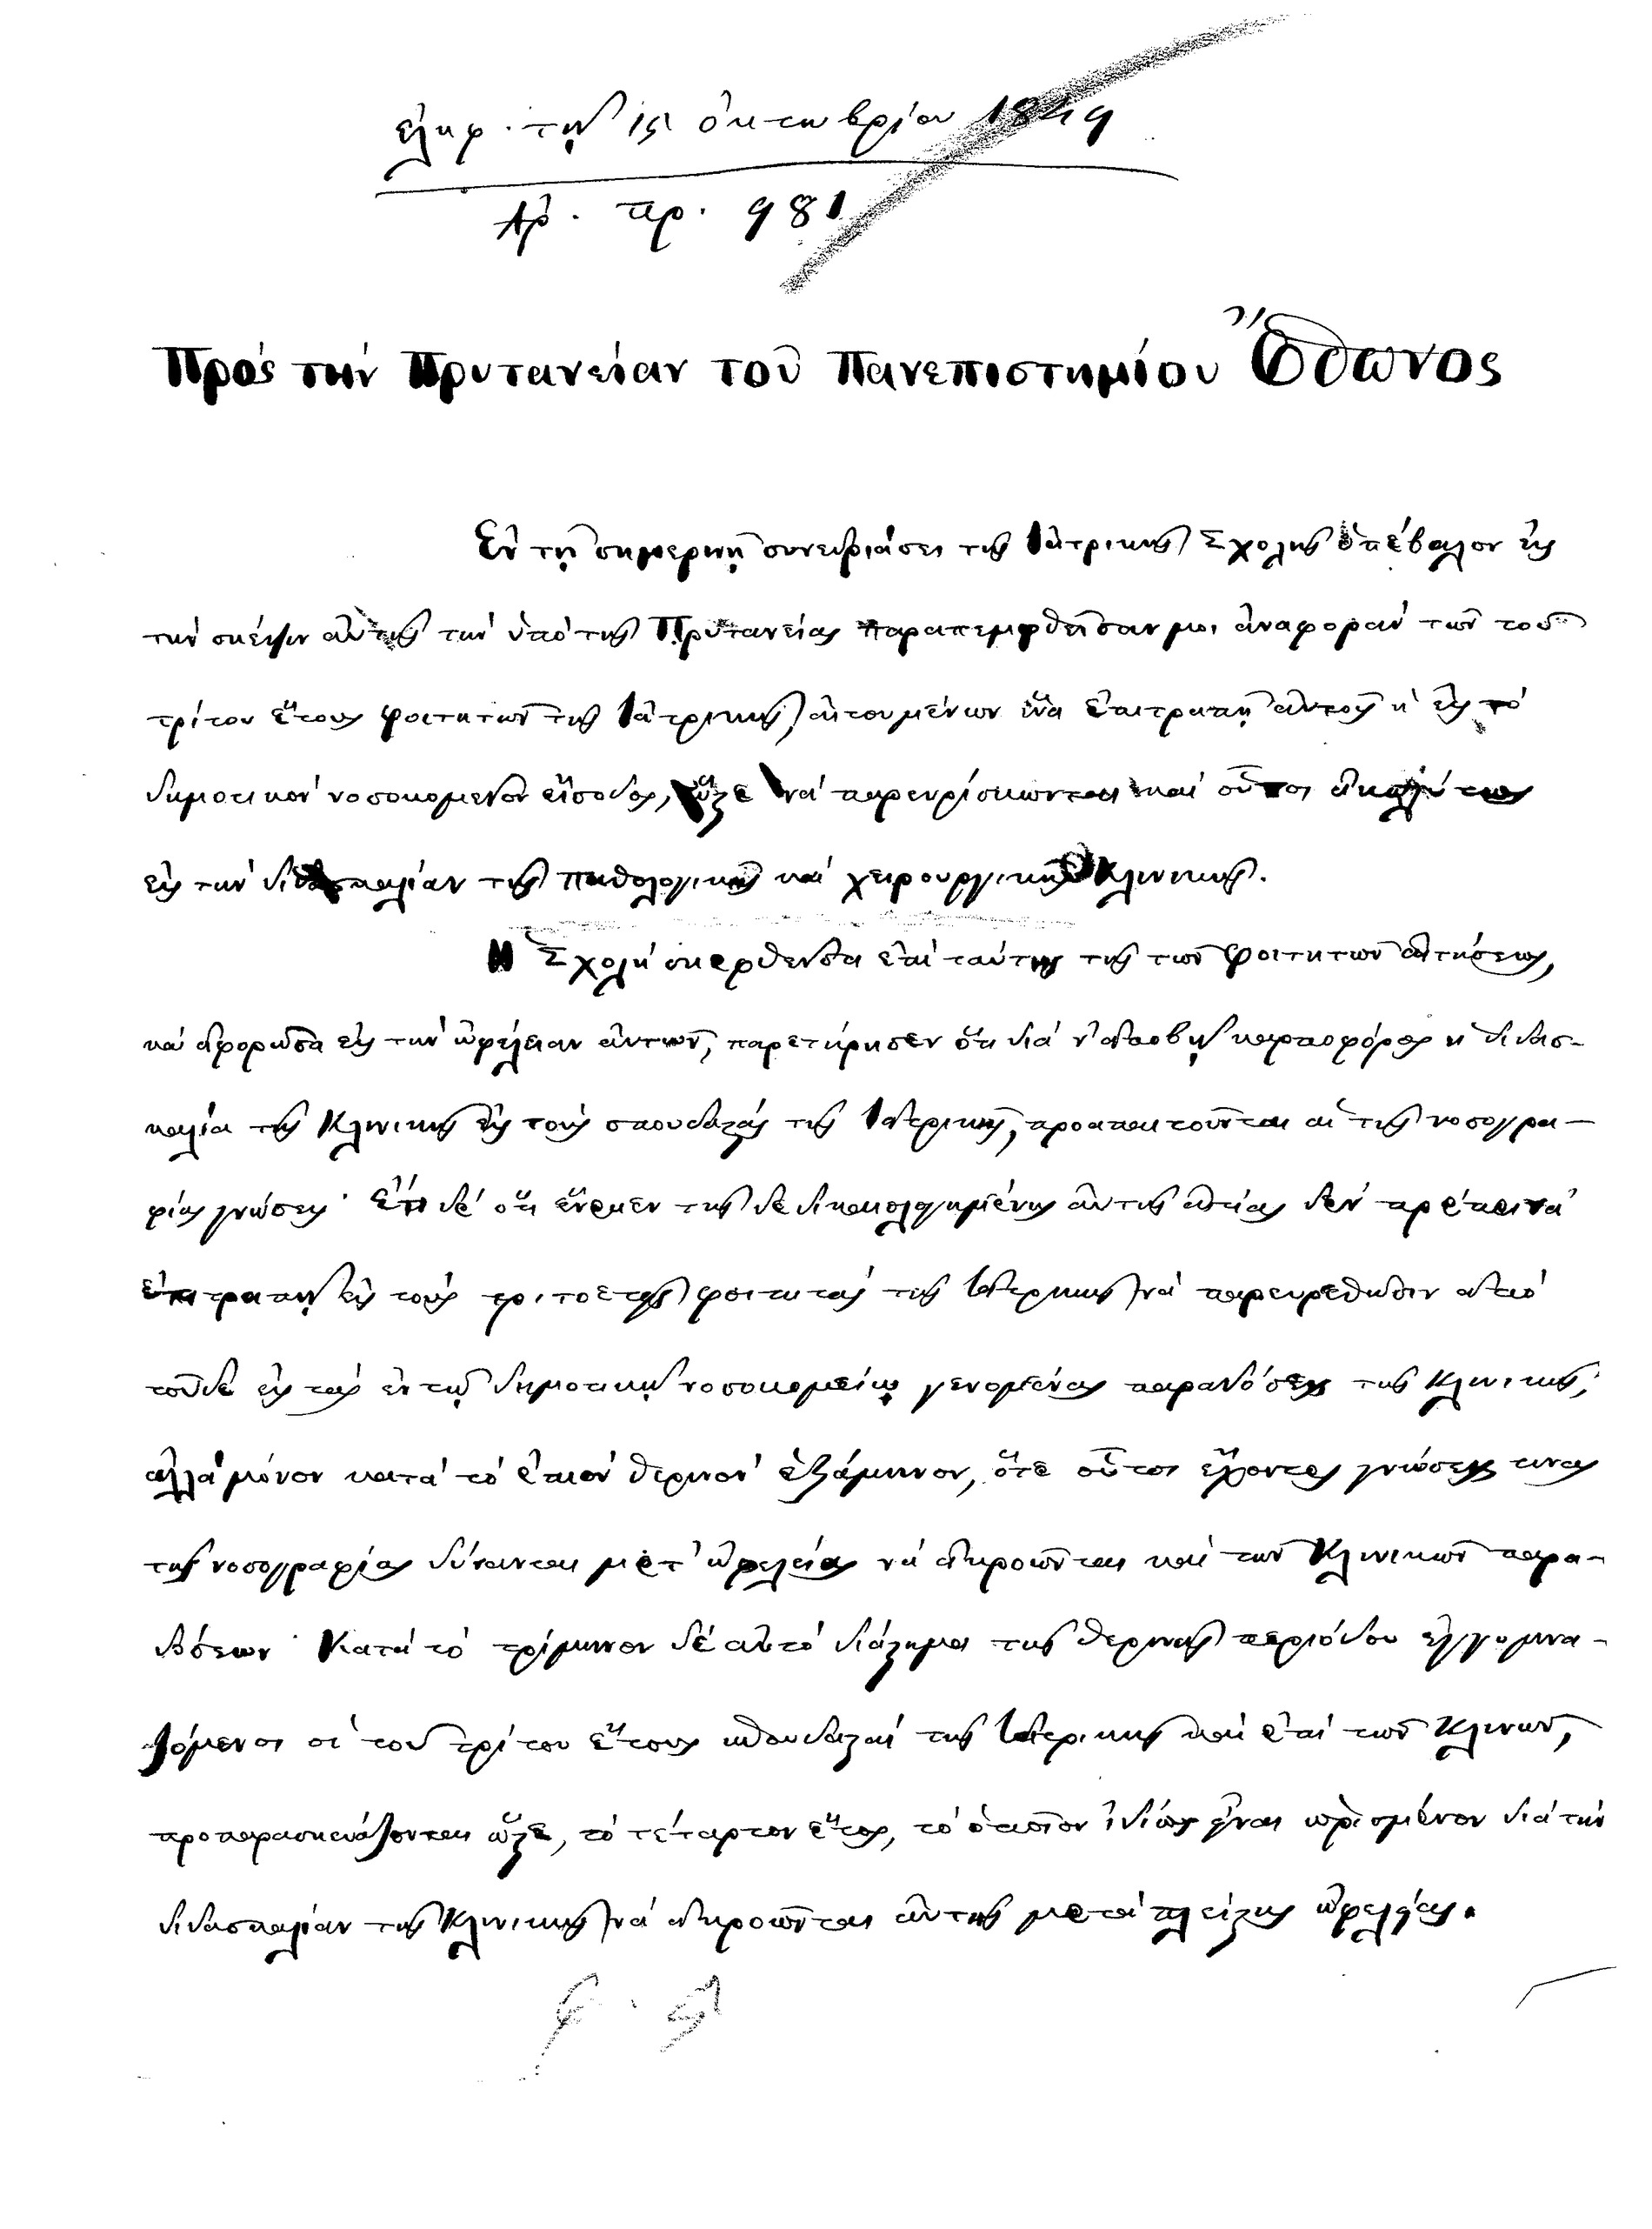 ἐλήφ. τῇ 15 ὀκτωβρίου 1849
Ἀρ. πρ. 981
Πρὸς τὴν Πρυτανείαν τοῦ Πανεπιστημίου Ὄθωνος
Ἐν τῇ σημερινῇ συνεδριάσει τῆς Ἰατρικῆς Σχολῆς ὑπέβαλον εἰς
τὴν σκέψιν αὐτῆς τὴν ὑπὸ τῆς Πρυτανείας παραπεμφθεῖσαν μοι ἀναφορὰν τῶν τοῦ
τρίτου ἔτους φοιτητῶν τῆς Ἰατρικῆς, αἰτουμένων ἵνα ἐπιτραπῇ αὐτοῖς ἡ εἰς τὸ
δημοτικὸν νοσοκομεῖον εἴσοδος, ὥστε νὰ παρευρίσκωνται καὶ οὗτοι ἀκωλύτως
εἰς τὴν διδασκαλίαν τῆς παθολογικῆς καὶ χειρουργικῆς Κλινικῆς.
Ἡ Σχολὴ σκεφθεῖσα ἐπὶ ταύτης τῆς τῶν φοιτητῶν αἰτήσεως,
καὶ ἀφορῶσα εἰς τὴν ὠφέλειαν αὐτῶν, παρετήρησεν ὅτι διὰ ν' ἀποβῇ καρποφόρος ἡ διδασ-
καλία τῆς Κλινικῆς εἰς τοὺς σπουδαστὰς τῆς Ἰατρικῆς, προαπαιτοῦνται αἱ τῆς νοσογρα-
φίας γνώσεις· ἐπὶ δὲ ὅτι ἕνεκεν τῆς δεδικαιολογημένης αὐτῆς αἰτίας δὲν πρέπει νὰ
ἐπιτραπῇ εἰς τοὺς τριτοετεῖς φοιτητὰς τῆς Ἰατρικῆς νὰ παρευρεθῶσιν ἀπὸ
τοῦδε εἰς τὰς ἐν τῷ δημοτικῷ νοσοκομείῳ γενομένας παραδόσεις τῆς Κλινικῆς,
ἀλλὰ μόνον κατὰ τὸ ἐπιὸν θερινὸν ἑξάμηνον, ὅτε οὗτοι ἔχοντες γνώσεις τινὰς
τῆς νοσογραφίας δύνανται μετ' ὠφελείας νὰ ἀκροῶνται καὶ τῶν Κλινικῶν παρα-
δόσεων· Κατὰ τὸ τρίμηνον δὲ αὐτὸ διάστημα τῆς θερινῆς περιόδου ἐγγυμνα-
ζόμενοι οἱ τοῦ τρίτου ἔτους σπουδασταὶ τῆς Ἰατρικῆς καὶ ἐπὶ τῶν Κλινῶν,
προπαρασκευάζονται ὥστε, τὸ τέταρτον ἔτος, τὸ ὁποῖον ἰδίως εἶναι ὡρισμένον διὰ τὴν
διδασκαλίαν τῆς Κλινικῆς νὰ ἀκροῶνται αὐτῆς μετὰ πλείστης ὠφελείας.